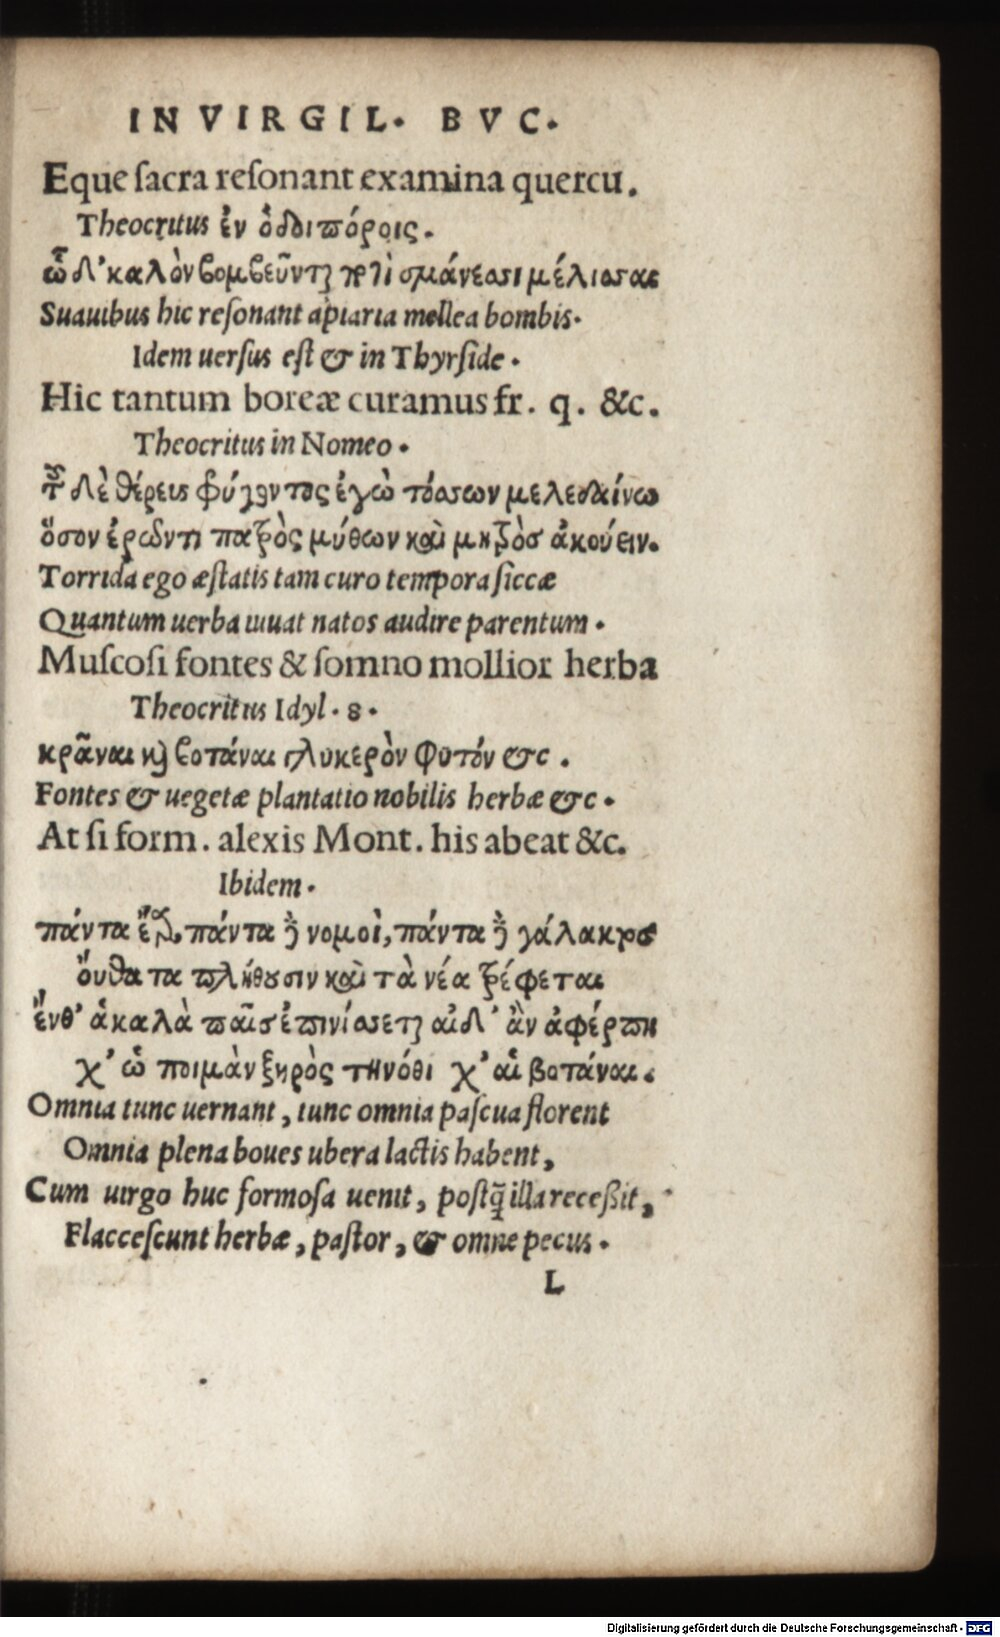 IN VIRGIL. BVC.
Eque ſacra reſonant examina quercu.
Theocritus ἐν ὁδοιπόροις.
ὧδ' καλὸν βομβεῦντι ποτὶ σμάνεσσι μέλισσαι
Suauibus hic reſonant apiaria mellea bombis.
Idem uerſus eſt & in Thyrſide.
Hic tantum boreæ curamus fr. q. &c.
Theocritus in Nomeo.
δὲ θέρευς φύγοντος ἐγὼ τόσσων μελεδαίνω
ὅσον ἐρῶντι πατρὸς μύθων καὶ μητρὸς ἀκούειν.
Torrida ego æſtatis tam curo tempora ſiccæ
Quantum uerba iuuat natos audire parentum.
Muſcoſi fontes & ſomno mollior herba
Theocritus Idyl. 8.
κρᾶναι καὶ βοτάναι γλυκερὸν φυτόν &c.
Fontes & uegetæ plantatio nobilis herbæ &c.
At ſi form. alexis Mont. his abeat &c.
Ibidem.
πάντα ἔαρ, πάντα δὲ νομοὶ, πάντα δὲ γάλακτος
ὄυθατα πλήθουσιν καὶ τὰ νέα τρέφεται
ἔνθ' ἁ καλὰ παῖς ἐπινίσσεται αἱ δ' ἂν ἀφέρπη
χ' ὡ ποιμὰν ξηρὸς τηνόθι χ' αἱ βοτάναι.
Omnia tunc uernant, tunc omnia paſcua florent
Omnia plena boues ubera lactis habent,
Cum uirgo huc formoſa uenit, poſtq̄ illa receßit,
Flacceſcunt herbæ, paſtor, & omne pecus.
L
Digitalisierung gefördert durch die Deutsche Forschungsgemeinschaft - DFG